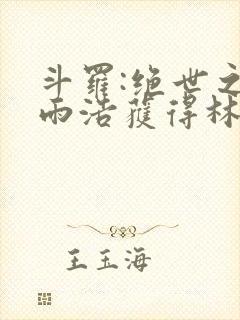 斗羅:绝世之
雨浩獲得林
王玉海